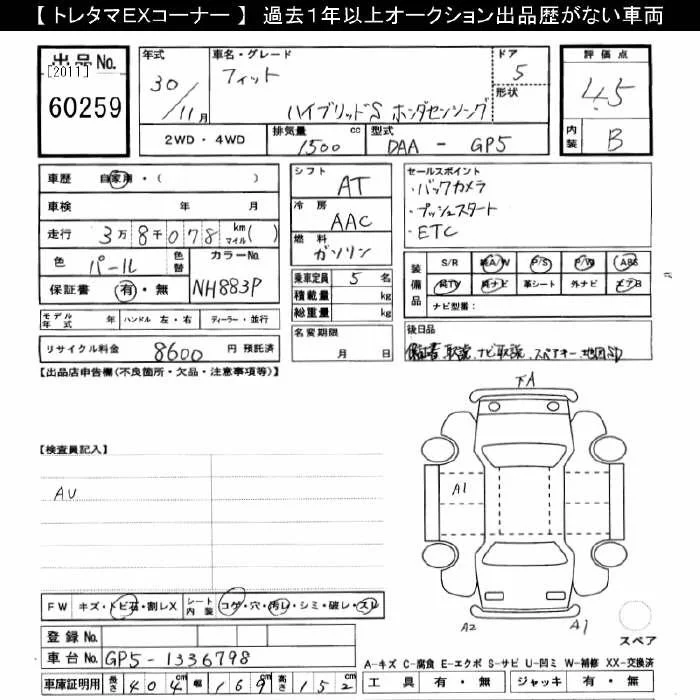 【 トレタマEXコーナー 】 過去１年以上オークション出品歴がない車両
出品No.
[2011]
60259
年式
30/11月
車名・グレード
フィット
ハイブリッドS ホンダセンシング
ドア
5
形状
評価点
4.5
内装
B
2WD・4WD
排気量
1500 cc
型式
DAA - GP5
車歴 自家用・( )
車検 年 月
走行 3万8千078 km マイル( )
色 パール 色替 カラーNo.
保証書 有・無 NH883P
モデル年式 年 ハンドル 左・右 ディーラー・並行
リサイクル料金 8600 円 預託済
シフト AT
冷房 AAC
燃料 ガソリン
乗車定員 5 名
積載量 kg
総重量 kg
名変期限
月 日
セールスポイント
・バックカメラ
・プッシュスタート
・ETC
装備品
S/R 純A/W P/S P/W ABS
純TV 純ナビ 革シート 外ナビ エアB
ナビ型番：
後日品
保証書 取説 ナビ取説 スペアキー 地図SD
【出品店申告欄(不良箇所・欠品・注意事項等)】
【検査員記入】
AU
下A
A1
A2
A1
スペア
FW キズ・トビ石・割レX シート内装 コゲ・穴・汚レ・シミ・破レ・スレ
登録No.
車台No. GP5-1336798
車庫証明用 長さ 404cm 幅 169cm 高さ 152cm
A-キズ C-腐食 E-エクボ S-サビ U-凹ミ W-補修 XX-交換済
工具 有・無 ジャッキ 有・無